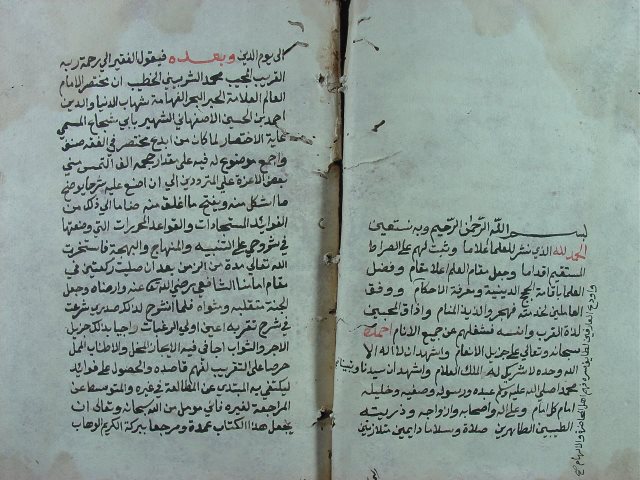 بسم الله الرحمن الرحيم وبه نستعين
الحمد لله الذي نشر للعلما اعلاما وثبت لهم على الصراط
المستقيم اقداما وجعل مقام العلم اعلا مقام وفضل
العلما باقامة الحجج الدينية ومعرفة الاحكام ووفق
العاملين لخدمته فهجروا لذيذ المنام واذاق المحبين
لذة القرب وانسه فشغلهم عن جميع الانام احمده
سبحانه وتعالى على جزيل الانعام واشهد ان لا اله الا
الله وحده لا شريك له الملك العلام واشهد ان سيدنا ونبينا
محمد صلى الله عليه وسلم عبده ورسوله وصفيه وخليله
امام كل امام وعلى اله واصحابه وازواجه وذريته
الطيبين الطاهرين صلاة وسلاما دايمين متلازمين
الى يوم الدين وبعده فيقول الفقير الى رحمة ربه
القريب المجيب محمد الشربيني الخطيب ان مختصر الامام
العالم العلامة الحبر البحر الفهامة شهاب الدنيا والدين
احمد بن الحسين الاصفهاني الشهير بابي شجاع المسمى
غاية الاختصار لما كان من ابدع مختصر في الفقه صنف
واجمع موضوع له فيه على مقدار حجمه الف التمس مني
بعض الاعزة علي المترددين الي ان اضع عليه شرحا يوضح
ما اشكل منه ويفتح ما اغلق منه ضاما الى ذلك من
الفوايد المستجادات والقواعد المحررات التي وضعتها
في شروحي على التنبيه والمنهاج والبهجة فاستخرت
الله تعالى مدة من الزمن بعد ان صليت ركعتين في
مقام امامنا الشافعي رضي الله عنه وارضاه وجعل
الجنة متقلبه ومثواه فلما انشرح لذلك صدري شرعت
في شرح تقر به اعين اولي الرغبات راجيا بذلك جزيل
الاجر والثواب اجافي فيه الايجاز المخل والاطناب الممل
حرصا على التقريب لفهم قاصده والحصول على فوائده
ليكتفي به المبتدي عن المطالعة في غيره والمتوسط عن
المراجعة لغيره فاني مومل من الله سبحانه وتعالى ان
يجعل هذا الكتاب عمدة ومرجعا ببركة الكريم الوهاب